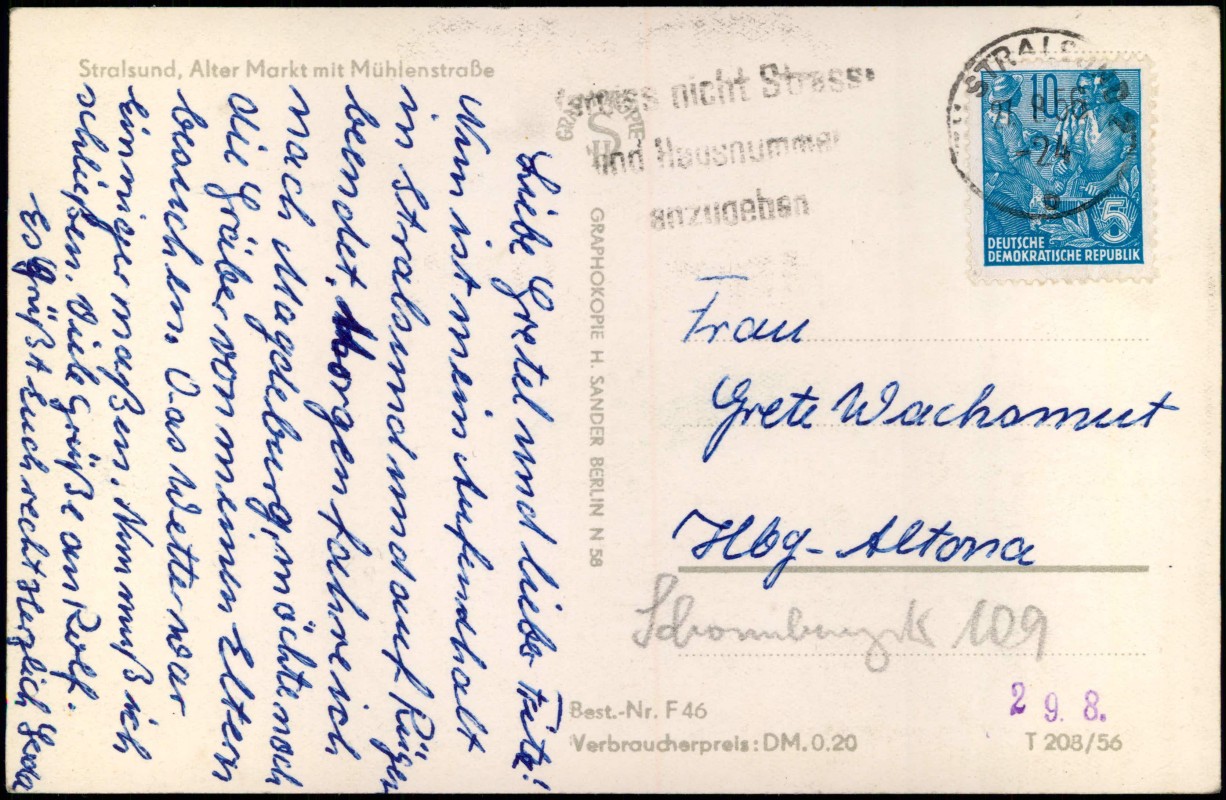 Stralsund, Alter Markt mit Mühlenstraße
Liebe Gretel und liebe
Nun ist mein Aufendhalt
in Stralsund und auf Rügen
beendet. Morgen fahre ich
nach Magdeburg, möchte noch
die Gräber von meinen Eltern
besuchen. Das Wetter war
einnigermaßen. Nun muß ich
schließen. Viele Grüße an Rolf.
Es Grüßt Euch recht Herzlich
GRAPHOKOPIE H. SANDER BERLIN N 58
nicht Strasse
und Hausnummer
anzugeben
STRALSUND
-24
10
5
DEUTSCHE
DEMOKRATISCHE REPUBLIK
Frau
Grete Wachsmut
Hbg-Altona
109
29.8.
Best.-Nr. F 46
Verbraucherpreis: DM. 0.20
T 208/56